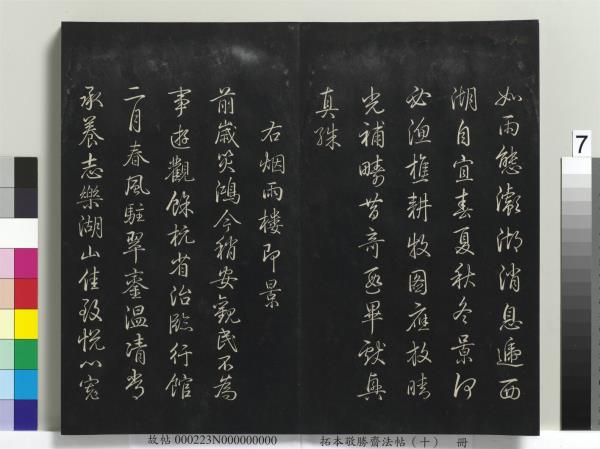 如雨態澎湖消息遞西
湖自宜春夏秋冬景何
必漁樵耕牧圖應放晴
光補疇昔奇 畢獻興
真殊
右烟雨樓即景
前歲災鴻今稍安觀民不為
事遊觀餘杭省治臨行館
二月春風駐翠鑾温凊常
承養志樂湖山佳致悦心寬
7
故帖 000223N000000000 拓本敬勝齋法帖（十） 冊